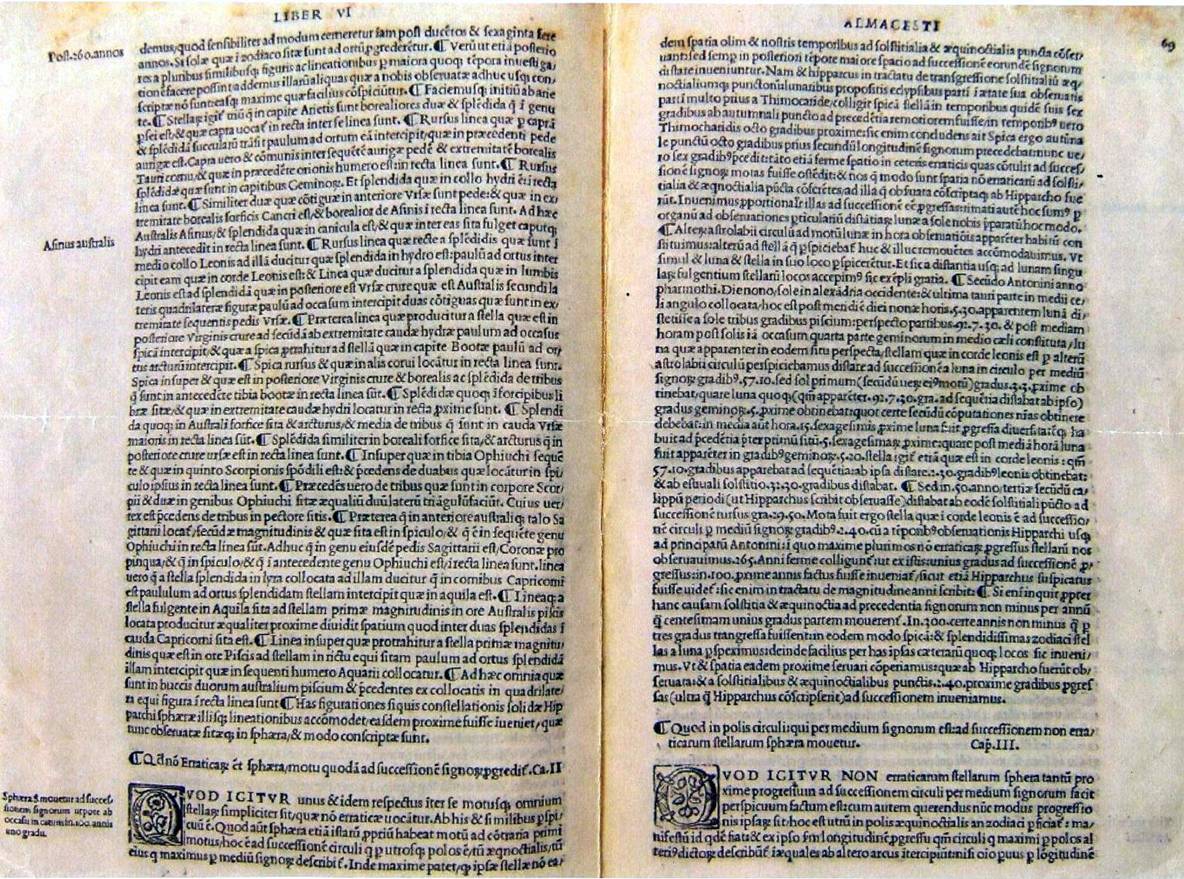 LIBER VI
Post.260.annos
demus/quod sensibiliter ad modum cerneretur iam post ducētos & sexaginta fere
annos. Si solæ quæ i zodiaco sitæ sunt ad ortū ꝓgrederētur. ¶ Verū ut etiā posterio
res a pluribus similibusq; figuris ac lineationibus ꝑ maiora quoq; tēpora inuestiga
tionē facere possint addemus illarū aliquas quæ a nobis obseruatæ adhuc usq; con
scriptæ nō sunt easq; maxime quæ facilius cōspiciūtur. ¶ Faciemusq; initiū ab arie
te. ¶ Stellaꝝ igit mūq̄ in capite Arietis sunt borealiores duæ & splēdida q̄ i genu
psei est/& quæ capra uocat in recta inter se linea sunt. ¶ Rursus linea quæ ꝑ caprā
& splēdidā succularū trāsit paulum ad ortum eā intercipit/quæ in præcedenti pede
aurigæ est. Capra uero & cōmunis inter sequētē aurigæ pedē & extremitatē borealis
Tauri cornu/& quæ in præcedēte orionis humero est: in recta linea sunt. ¶ Rursus
splēdidæ quæ sunt in capitibus Geminoꝝ. Et splendida quæ in collo hydri ē: i recta
linea sunt. ¶ Similiter duæ quæ cōtiguæ in anteriore Vrsæ sunt pede: & quæ in ex
tremitate borealis forficis Cancri est/& borealior de Asinis i recta linea sunt. Ad hæc
Asinus australis
Australis Asinus/& splendida quæ in canicula est/& quæ inter eas sita fulget caputq;
hydri antecedit in recta linea sunt. ¶ Rursus linea quæ recte a splēdidis quæ sunt i
medio collo Leonis ad illā ducitur quæ splendida in hydro est: paulū ad ortus inter
cipit eam quæ in corde Leonis est: & Linea quæ ducitur a splendida quæ in lumbis
Leonis est ad splendidā quæ in posteriore est Vrsæ crure quæ est Australis secundi la
teris quadrilateræ figuræ paulū ad occasum intercipit duas cōtiguas quæ sunt in ex
tremitate sequentis pedis Vrsæ. ¶ Præterea linea quæ producitur a stella quæ est in
posteriore Virginis crure ad secūdā ab extremitate caudæ hydræ paulum ad occasus
spicā intercipit/& quæ a spica ꝓtrahitur ad stellā quæ in capite Bootæ paulū ad or
tus arcturū intercipit. ¶ Spica rursus & quæ in alis corui locātur in recta linea sunt.
Spica insuper & quæ est in posteriore Virginis crure & borealis ac splēdida de tribus
q̄ sunt in antecedēte tibia bootæ in recta linea sūt. ¶ Splēdidæ quoq; i forcipibus li
bræ sitæ/& quæ in extremitate caudæ hydri locatur in recta ꝓxime sunt. ¶ Splendi
da quoq; in Australi forfice sita & arcturus/& media de tribus q̄ sunt in cauda Vrsæ
maioris in recta linea sūt. ¶ Splēdida similiter in boreali forfice sita/& arcturus q̄ in
posteriore crure ursæ est in recta linea sunt. ¶ Insuper quæ in tibia Ophiuchi sequē
te & quæ in quinto Scorpionis spōdili est: & p̄cedens de duabus quæ locātur in spi
culo ipsius in recta linea sunt. ¶ Præcedēs uero de tribus quæ sunt in corpore Scor
pii & duæ in genibus Ophiuchi sitæ æqualiū duū laterū triāgulū faciūt. Cuius uer
tex est p̄cedens de tribus in pectore sitis. ¶ Præterea q̄ in anteriore australiq; talo Sa
gittarii locat/secūdæ magnitudinis & quæ sita est in spiculo/& q̄ ē in sequēte genu
Ophiuchi in recta linea sūt. Adhuc q̄ in genu eiusdē pedis Sagittarii est/Coronæ pro
pinqua/& q̄ in spiculo/& q̄ i antecedente genu Ophiuchi est/i recta linea sunt. linea
uero q̄ a stella splendida in lyra collocata ad illam ducitur q̄ in cornibus Capricorni
est paululum ad ortus splendidam stellam intercipit quæ in aquila est. ¶ Lineaq; a
stella fulgente in Aquila sita ad stellam primæ magnitudinis in ore Australis piscis
locata producitur æqualiter proxime diuidit spatium quod inter duas splendidas i
cauda Capricorni sita est. ¶ Linea insuper quæ protrahitur a stella primæ magnitu
dinis quæ est in ore Piscis ad stellam in rictu equi sitam paulum ad ortus splendidā
illam intercipit quæ in sequenti humero Aquarii collocatur. ¶ Ad hæc omnia quæ
sunt in buccis duorum australium piscium & p̄cedentes ex collocatis in quadrilate
ra equi figura i recta linea sunt ¶ Has figurationes si quis constellationis solidæ Hip
parchi sphæræ illisq; lineationibus accōmodet/easdem proxime fuisse iueniet/quæ
tunc obseruatæ sitæq; in sphæra/& modo conscriptæ sunt.
¶ Qd nō Erraticaꝝ ēt sphæra/motu quodā ad successionē signoꝝ ꝓgredit. Ca. II
Sphæra 8 mouetur ad succes
sionem signorum utpote ab
occasu in ortum in.100.annis
uno gradu.
QVOD IGITVR unus & idem respectus iter se motusq; omnium
stellaꝝ simpliciter sit/quæ nō erraticæ uocātur. Ab his & similibus pspi
cuū ē. Quod aūt sphæra etiā istarū ppriū habeat motū ad cōtraria primi
motus/hoc ē ad successionē circuli q ꝑ utrosq; polos ē/tū æqnoctialis/tū
eius q maximus ꝑ mediū signoꝝ describit. Inde maxime patet/q ipsæ stellæ nō ea
ALMAGESTI
69
dem spatia olim & nostris temporibus ad solstitialia & æquinoctialia puncta cōser
uant: sed semp in posteriori tēpore maiore spacio ad successionē eorundē signorum
distare inueniuntur. Nam & hipparcus in tractatu de transgressione solstitialiū æq
noctialiumq; punctoꝝ lunaribus propositis eclypsibus parti i ætate sua obseruatis
parti multo prius a Thimocaride/colligit spicā stellā in temporibus quidē suis sex
gradibus ab autumnali puncto ad præcedētia remotiorem fuisse/in temporib9 uero
Thimocharidis octo gradibus proxime: sic enim concludens ait Spica ergo autūna
le punctū octo gradibus prius secundū longitudinē signorum precedebat nunc ue
ro sex gradib9 p̄cedit: itatē etiā ferme spatio in ceteris erraticis quas cōtulit ad succes
sionē signoꝝ motas fuisse ostēdit: & nos q modo sunt sparia nō erraticarū ad solsti
tialia & æqnoctialia pūcta cōferētes/ad illa q obseruata cōscriptaq; ab Hipparcho fue
rūt. Inuenimus pportionalr illas ad successionē eē pgressas tirati autē hoc sum9 p
organū ad obseruationes pticulariū distātiaꝝ lunæ a sole nobis pparatū hoc modo.
¶ Alteꝝ astrolabii circulū ad motū lunæ in hora obseruatiōis apparēter habitū con
stituimus: alterū ad stellā q pspiciebat huc & illuc remouētes accōmodauimus. Vt
simul & luna & stella in suo loco pspiceretur. Et sic a distantia usq; ad lunam singu
laꝝ fulgentium stellarū locos accepim9 sic exēpli gratia. ¶ Secūdo Antonini anno
pharmothi. Die nono/sole in alexādria occidente: & ultima tauri parte in medii ce
li angulo collocata/hoc est post meridiē diei nonæ horis.5.30.apparentem lunā di
stetisse a sole tribus gradibus piscium: perspecto partibus.92.7.30. & post mediam
horam post solis iā occasum quarta parte geminorum in medio cæli constituta/lu
na quæ apparenter in eodem situ perspecta/stellam quæ in corde leonis est p alterū
astrolabii circulū perspiciebamus distare ad successionē a luna in circulo per mediū
signoꝝ gradib9.57.10. sed sol primum (secūdū ueꝝ ei9 motū) gradus.3.3.pxime ob
tinebat/quare luna quoq; (qm̄ appareter.92.7.30.gra.ad sequētia distabat ab ipso)
gradus geminoꝝ.5.pxime obtinebat: quot certe secūdū cōputationes nīas obtinere
debebat: in media aūt hora.15.sexagesimis pxime luna fuit pgressa diuersitatēq; ha
buit ad p̄cedētia pter primū sitū.5.sexagesimaꝝ pxime: quare post mediā horā luna
fuit apparēter in gradib9 geminoꝝ.5.20.stella igit etiā quæ est in corde leonis: qm̄
57.10.gradibus apparebat ad sequētia: ab ipsa distare.2.30.gradib9 leonis obtinebat:
& ab estiuali solstitio.32.30.gradibus distabat. ¶ Sed in.50.anno/tertiæ secūdū ca
lippū periodi (ut Hipparchus scribit obseruasse) distabat ab eodē solstitiali pūcto ad
successionē rursus gra.29.50. Mota fuit ergo stella quæ i corde leonis ē ad successio
nē circuli p mediū signoꝝ gradib9.2.40.cū a tēporib9 obseruationis Hipparchi usq;
ad principatū Antonini: i quo maxime plurimos nō erraticaꝝ pgressus stellarū nos
obseruauimus.265.Anni ferme colligunt/ut ex istis: unius gradus ad successionē p
gressus: in.100.pxime annis factus fuisse inueniat/sicut etiā Hipparchus suspicatus
fuisse uidet: sic enim in tractatu de magnitudine anni scribit: ¶ Si enī inquit ppter
hanc causam solstitia & æquinoctia ad precedentia signorum non minus per annū
q̄ centesimam unius gradus partem mouerent. In.300.certe annis non minus q̄ p
tres gradus transgressa fuissent: in eodem modo spicā: & splendidissimas zodiaci stel
las a luna pspeximus: deinde facilius per has ipsas cæterarū quoq; locos sic inueni
mus. Vt & spatia eadem proxime seruari cōperiamus: quæ ab Hipparcho fuerūt ob
seruata: & a solstitialibus & æquinoctialibus punctis.2.40.proxime gradibus pgres
sas (ultra q̄ Hipparchus cōscripserit) ad successionem inueniamus.
¶ Quod in polis circuli: qui per medium signorum est: ad successionem non erra
ticarum stellarum sphæra mouetur. Cap. III.
QVOD IGITVR NON erraticarum stellarum sphera tantū pro
xime progressum ad successionem circuli per medium signorum facit
perspicuum factum est: cum autem querendus nūc modus progressio
nis ipsaꝝ sit/hoc est utrū in polis æquinoctialis an zodiaci pficiat: ma
nifestū id qdē fiat: & ex ipso fm longitudinē pgressu qm̄ circuli q maximi p polos al
teri9 dictoꝝ describūt iæquales ab altero arcus itercipiūt: nisi oīo puus p lōgitudinē